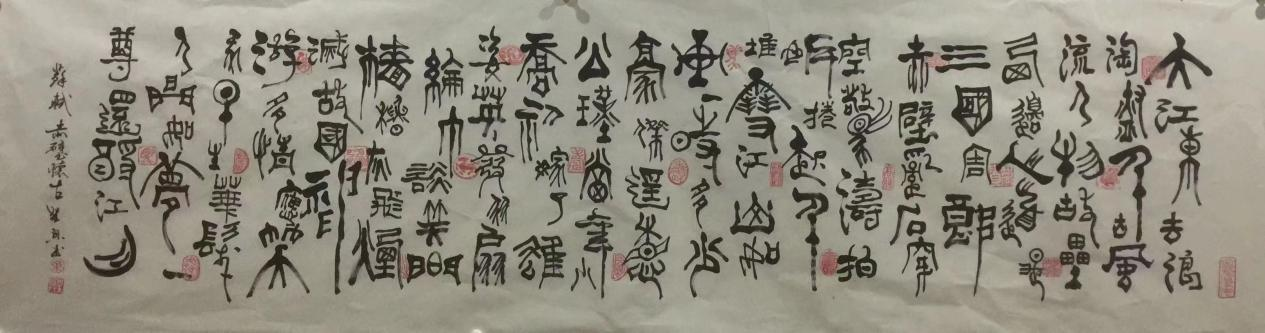 大江東去浪
淘盡千古風
流人物故壘
西邊人道是
三國周郎
赤壁亂石穿
空驚濤拍
岸捲起千
堆雪江山如
畫一時多少
豪傑遥想
公瑾當年小
喬初嫁了雄
姿英發羽扇
綸巾談笑間
檣櫓灰飛煙
滅故國神
游多情應笑
我早生華髮
人間如夢一
尊還酹江月
蘇軾赤壁懷古